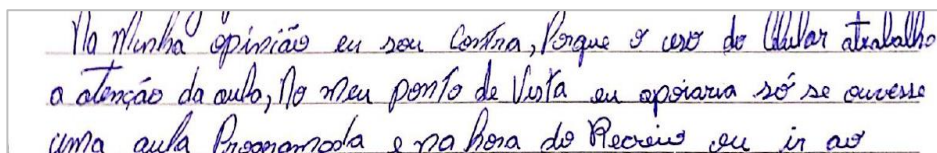 Na Minha opinião eu sou Contra, Porque o uso do Celular atrabalho
a atenção da aula, No meu ponto de Vista eu apoiaria só se ouvesse
uma aula Programada e na hora do Recreio ou ir ao